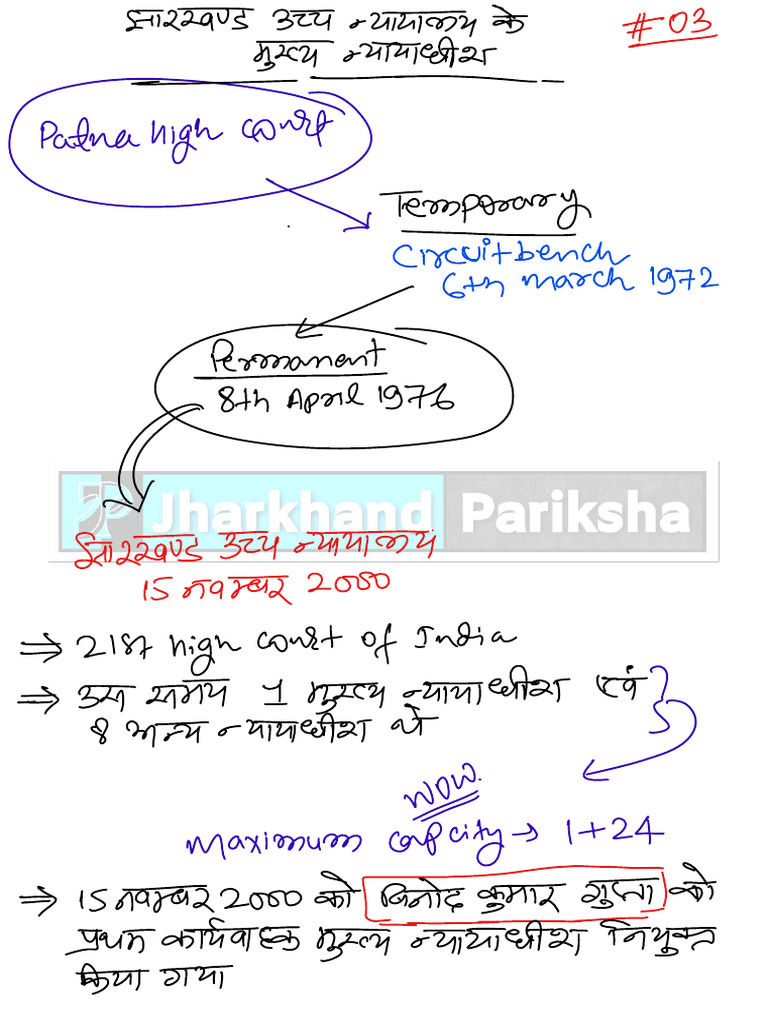 झारखण्ड उच्च न्यायालय के
मुख्य न्यायाधीश
#03
Patna high court
Temporary
Circuit bench
6th march 1972
Permanent
8th April 1976
Jharkhand Pariksha
झारखण्ड उच्च न्यायालय
15 नवम्बर 2000
⇒ 21st high court of India
⇒ उस समय 1 मुख्य न्यायाधीश एवं
8 अन्य न्यायाधीश थे
wow.
Maximum capcity → 1+24
⇒ 15 नवम्बर 2000 को बिनोद कुमार गुप्ता को
प्रथम कार्यवाहक मुख्य न्यायाधीश नियुक्त
किया गया